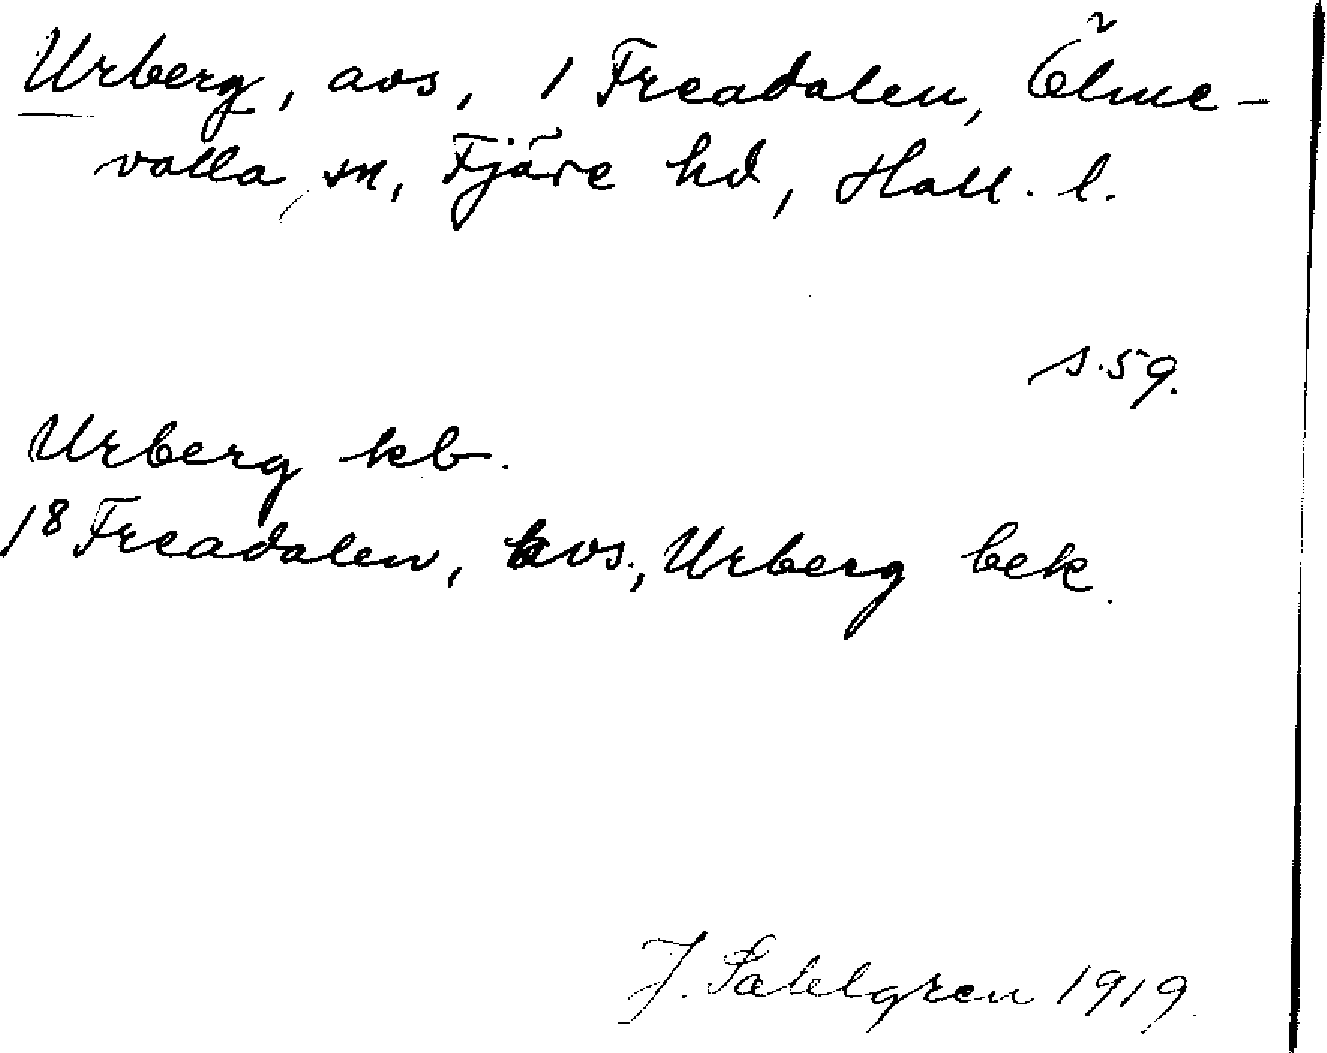 Urberg, avs, 1 Freadalen, Ölme-
valla sn, Fjäre hd, Hall. l.
s. 59.
Urberg kb.
1⁸ Freadalen, avs., Urberg bek.
J. Sahlgren 1919.